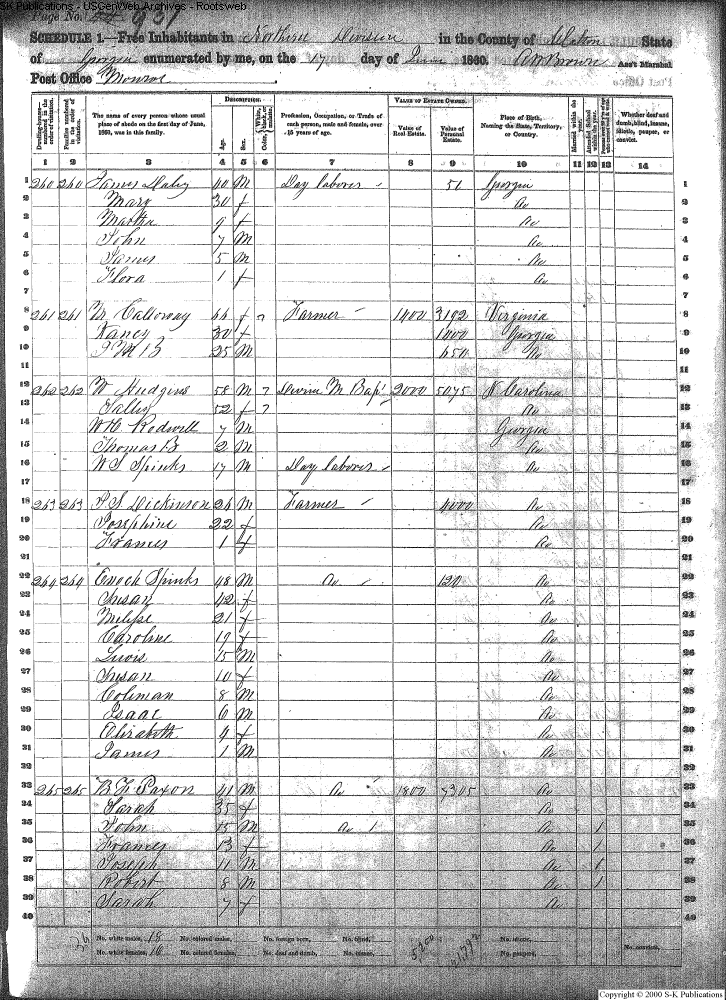 S-K Publications - USGenWeb Archives - Rootsweb
Page No.
SCHEDULE 1.—Free Inhabitants in Northern Division in the County of Walton State
of Georgia enumerated by me, on the 17 day of June 1860. A W Brown Ass't Marshal
Post Office Monroe
Dwelling-houses— numbered in the order of visitation.
Families numbered in the order of visitation.
The name of every person whose usual place of abode on the first day of June, 1860, was in this family.
DESCRIPTION.
Age.
Sex.
Color, White, black, or mulatto.
Profession, Occupation, or Trade of each person, male and female, over 15 years of age.
VALUE OF ESTATE OWNED.
Value of Real Estate.
Value of Personal Estate.
Place of Birth, Naming the State, Territory, or Country.
Married within the year.
Attended School within the year.
Whether deaf and dumb, blind, insane, idiotic, pauper, or convict.
1 2 3 4 5 6 7 8 9 10 11 12 13 14
1 260 260 James 40 M Day laborer 51 Georgia 1
2 Mary 30 f Do 2
3 Martha 9 f Do 3
4 John 7 M Do 4
5 James 5 M Do 5
6 Flora 1 f Do 6
7 7
8 261 261 M Calloway 66 f 7 Farmer 1400 3192 Virginia 8
9 Nancy 30 f 1400 Georgia 9
10 25 M 650 Do 10
11 11
12 262 262 W Hudgins 58 M 7 Divine M Bap 2000 5075 N Carolina 12
13 Sally 52 f 7 Do 13
14 W H Rodwell 7 M Georgia 14
15 Thomas B 2 M Do 15
16 W S Spinks 17 M Day laborer Do 16
17 17
18 263 263 P S Dickinson 26 M Farmer 4000 Do 18
19 Josephine 22 f Do 19
20 Frances 1 f Do 20
21 21
22 264 264 Enoch Spinks 48 M Do 120 Do 22
23 Susan 42 f Do 23
24 21 f Do 24
25 Caroline 19 f Do 25
26 Lewis 15 M Do 26
27 Susan 10 f Do 27
28 Coleman 8 M Do 28
29 Isaac 6 M Do 29
30 Elizabeth 4 f Do 30
31 James 1 M Do 31
32 32
33 265 265 B F Saxon 41 M Do 1800 7305 Do 33
34 Sarah 35 f Do 34
35 John 15 M Do Do 1 35
36 Frances 13 f Do 1 36
37 Joseph 11 M Do 1 37
38 Robert 8 M Do 1 38
39 Sarah 7 f Do 39
40 40
34 No. white males, 18 No. colored males, No. foreign born, No. blind, 5200 21792 No. idiotic,
No. white females, 16 No. colored females, No. deaf and dumb, No. insane, No. paupers, No. convicts,
Copyright © 2000 S-K Publications